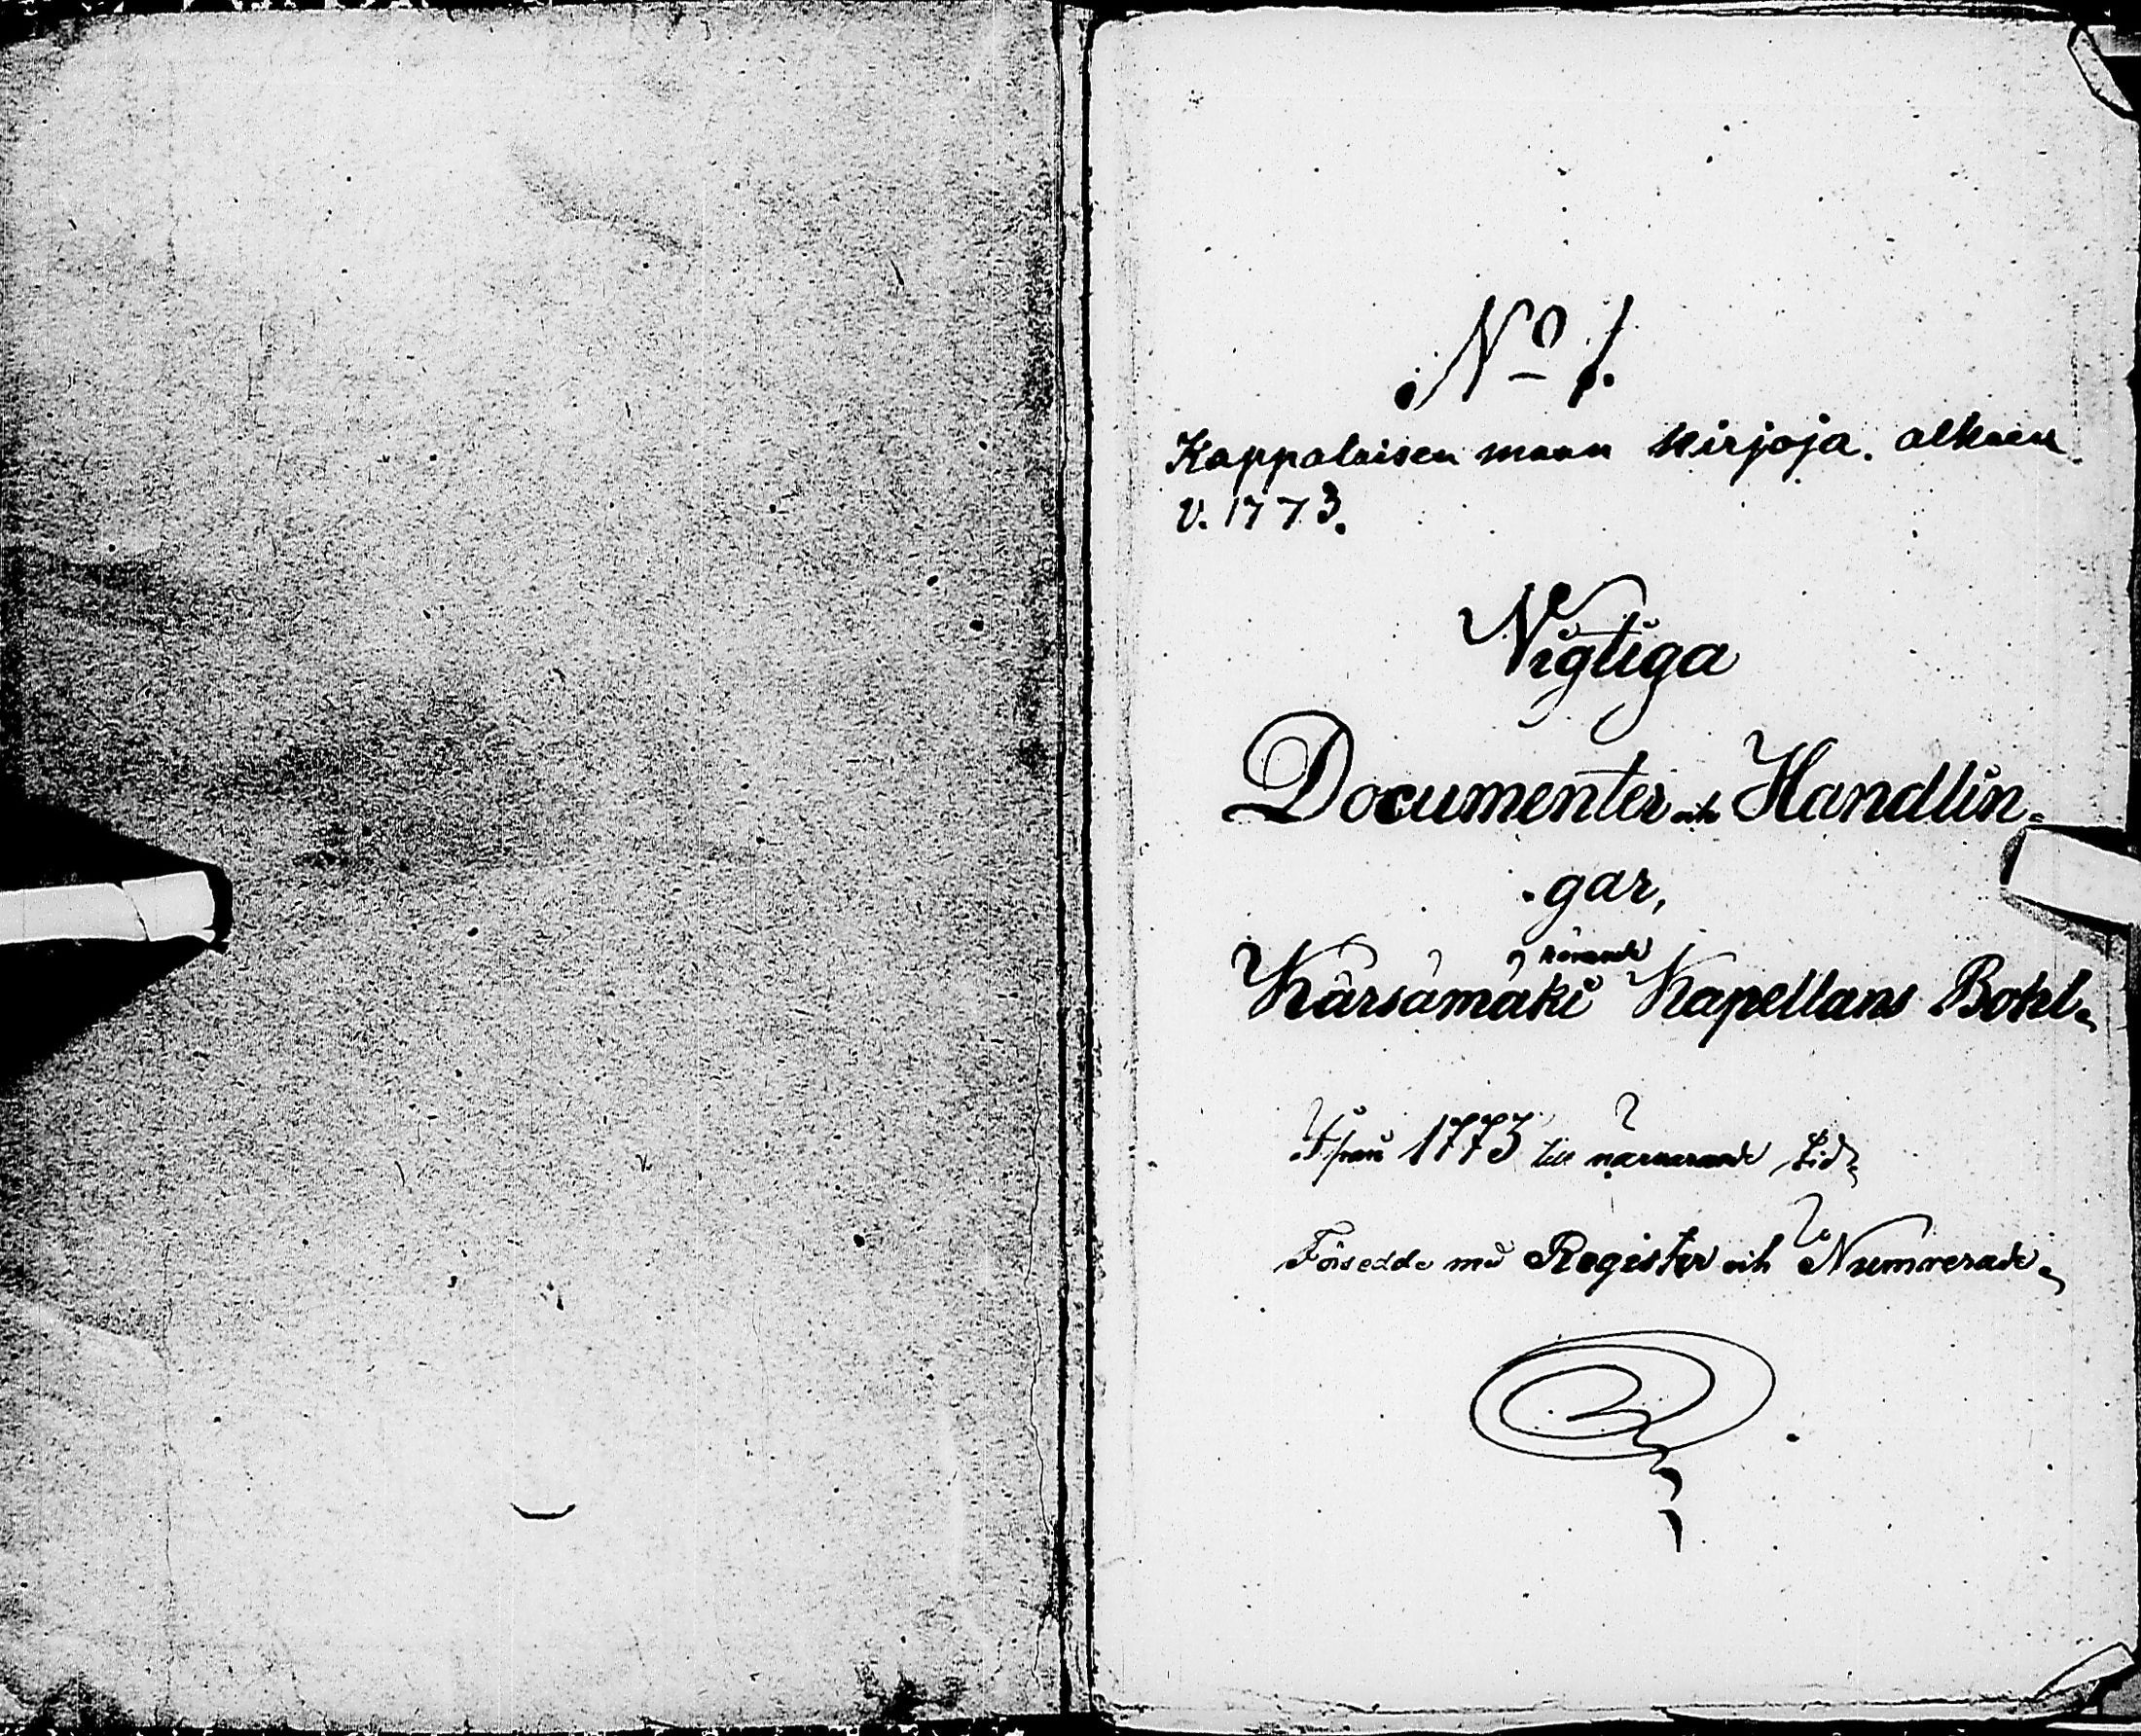 No 1.
Kappalaisen maan kirjoja. alkaen
v. 1773.
Vigtiga
Documenter och Handlin-
gar,
rörande
Kärsämäki Kapellans Bohl.
Ifrån 1773 till närvarande tid.
Försedde med Register och Numrerade.